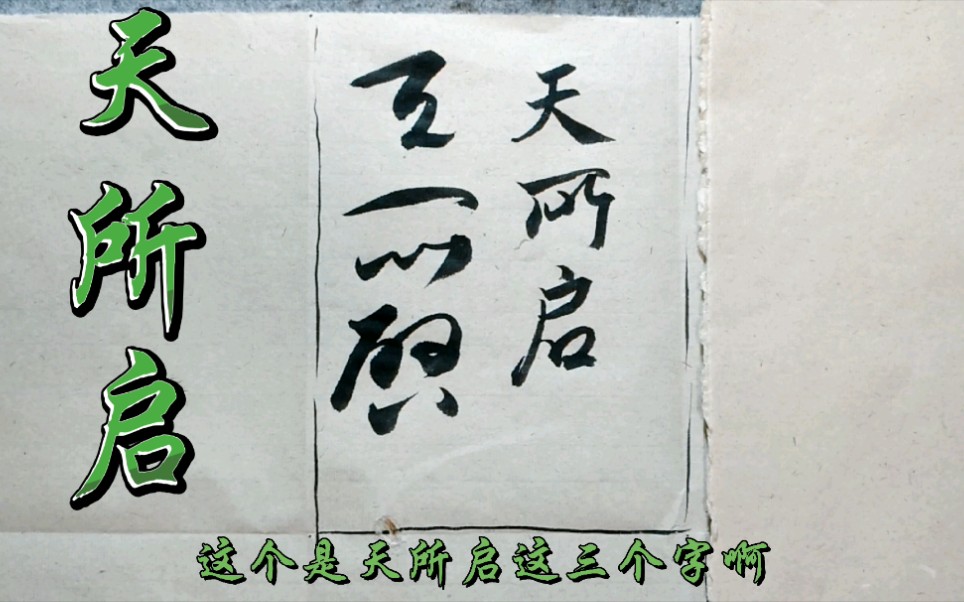 天所启
天所启
天所啓
这个是天所启这三个字啊